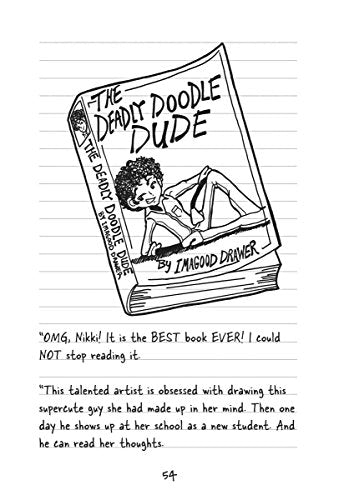 THE
DEADLY DOODLE
DUDE
THE DEADLY DOODLE DUDE
BY IMAGOOD
DRAWER
BY IMAGOOD DRAWER
"OMG, Nikki! It is the BEST book EVER! I could
NOT stop reading it.
"This talented artist is obsessed with drawing this
supercute guy she had made up in her mind. Then one
day he shows up at her school as a new student. And
he can read her thoughts.
54